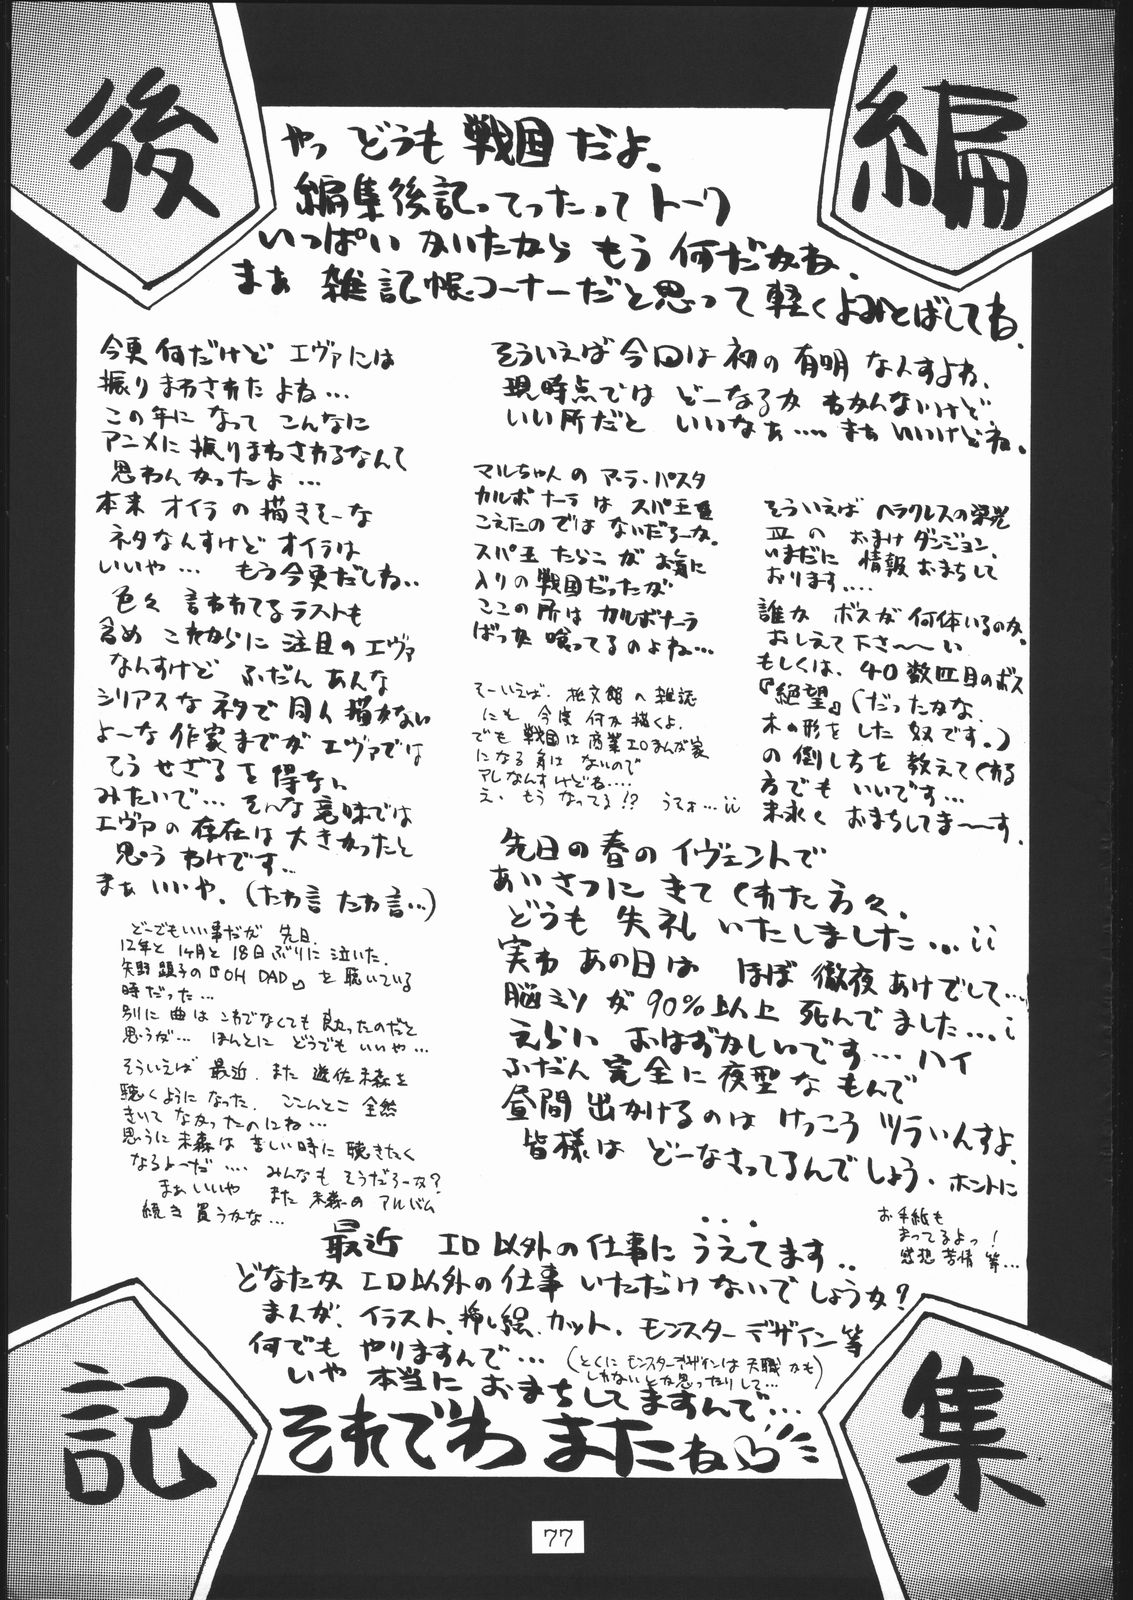 編集後記
やっ どうも 戦国だよ.
編集後記ってったって トーク
いっぱい かいたから もう 何だかね.
まぁ 雑記帳コーナーだと思って 軽くよみとばしてね.
そういえば 今回は 初の 有明 なんすよね.
現時点では どーなるか わかんないけど
いい所だと いいなぁ.... まぁ いいけどね.
今更 何だけど エヴァには
振りまわされた よね...
この年に なって こんなに
アニメに 振りまわされるなんて
思わんかったよ...
本来 オイラ の 描きそーな
ネタなんすけど オイラは
いいや... もう 今更だしね..
色々 言われてる ラストも
含め これからに 注目の エヴァ
なんすけど ふだん あんな
シリアスな ネタで 同人 描かない
よーな 作家までが エヴァでは
そうせざるを 得ない
みたいで... そんな 意味では
エヴァの 存在は 大きかったと
思うわけです...
まぁ いいや. (たわ言 たわ言...)
どーでもいい事だが 先日.
12年と 1ヶ月と 18日ぶりに 泣いた.
矢野 顕子の『OH DAD』を 聴いている
時だった...
別に 曲は これでなくても 良かったのだと
思うが... ほんとに どうでも いいや...
そういえば 最近. また 遊佐未森を
聴くようになった. ここんとこ 全然
きいて なかったのにね...
思うに 未森は 苦しい時に 聴きたく
なるよーだ.... みんなも そうだろーか?
まぁ いいや また 未森の アルバム
続き 買うかな...
マルちゃん の アーラ・パスタ
カルボナーラ は スパ王を
こえたの では ないだろーか.
スパ王 たらこ が お気に
入りの 戦国だったが
ここの 所は カルボナーラ
ばっか 喰ってるのよね...
そーいえば. 桜文館 の 雑誌
にも 今度 何か 描くよ.
でも 戦国は 商業エロまんが家
になる 気は ないので
アレなんすけどね....
え. もう なってる!? うてぉ...
そういえば ヘラクレスの栄光
Ⅲの おまけ ダンジョン.
いまだに 情報 おまちして
おります....
誰か ボスが 何体いるのか.
おしえて 下さ〜〜い
もしくは、40数匹目のボス
『絶望』(だったかな.
木の形を した 奴です.)
の 倒し方を 教えてくれる
方でも いいです...
末永く おまちしてま〜〜す.
先日の 春の イヴェントで
あいさつに きて くれた 方々.
どうも 失礼 いたしました...
実わ あの日は ほぼ 徹夜 あけでして...
脳ミソが 90%以上 死んでました...
えらい おはずかしいです... ハイ
ふだん 完全に 夜型な もんで
昼間 出かけるのは けっこう ツラいんすよ.
皆様は どーなさってるんでしょう. ホントに
...
お手紙も
まってるよっ!
感想 苦情 等...
最近 エロ以外の 仕事に うえてます..
どなたか エロ以外の 仕事 いただけないでしょうか?
まんが. イラスト. 挿し絵. カット. モンスター デザイン 等
何でも やりますんで... (とくに モンスターデザインは 天職 かも
しれない とか 思ったりして...)
いや 本当に おまちしてますんで...
それでわ またね
77